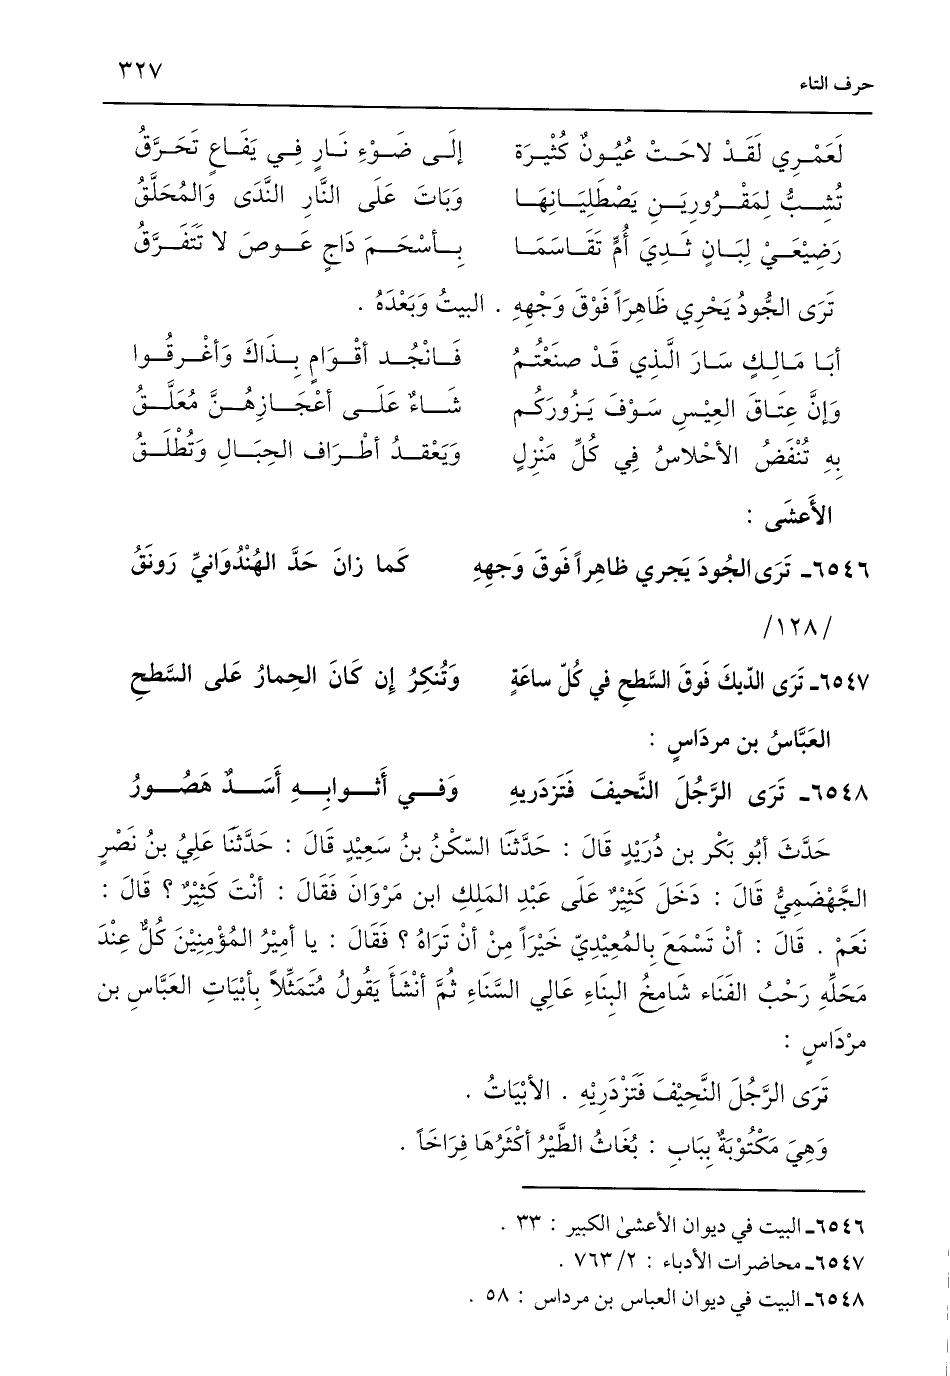 حرف التاء ٣٢٧
لَعَمْرِي لَقَدْ لاحَتْ عُيُونٌ كَثِيْرَة إلَى ضَوْءِ نَارٍ فِي يَفَاعٍ تَحَرَّقُ
تُشَبُّ لِمَقْرُورِيَنِ يَصْطَلِيَانِهَا وَبَاتَ عَلَى النَّارِ النَّدَى وَالمُحَلَّقُ
رَضِيْعَيْ لِبَانٍ ثَدِيَ أُمٍّ تَقَاسَمَا بِأسْحَمَ دَاجٍ عَوصَ لا تَتَفَرَّقُ
تَرَى الجُّودُ يَجْرِي ظَاهِرَاً فَوْقَ وَجْهِهِ . البيتُ وَبَعْدَهُ .
أبَا مَالِكٍ سَارَ الَّذِي قَدْ صنَعْتُم فَانْجُد أقْوَامٍ بِذَاكَ وَأغْرِقُوا
وَإنَّ عِتَاقَ العِيْسِ سَوْفَ يَزُورَكُم شَاءٌ عَلَى أعْجَازِهُنَّ مُعَلَّقُ
بِهِ تُنْفَضُ الأحْلاسُ فِي كُلِّ مَنْزِلٍ وَيَعْقدُ أطْرَاف الحِبَالِ وَتُطْلَقُ
الأَعشَى :
٦٥٤٦ـ تَرَى الجُودَ يَجرِي ظاهِراً فَوقَ وَجهِهِ كَما زانَ حَدَّ الهُنْدُوَانيِّ رَونَقُ
/١٢٨/
٦٥٤٧ـ تَرَى الدّيكَ فَوقَ السَّطحِ في كُلّ ساعَةٍ وَتُنكِرُ إن كَانَ الحِمارُ عَلى السَّطحِ
العَبَّاسُ بن مردَاسٍ :
٦٥٤٨ـ تَرَى الرَّجُلَ النَّحيفَ فَتَزدَريهِ وَفي أَثوابِهِ أَسَدٌ هَصُورُ
حَدَّثَ أبُو بَكْر بن دُرَيْدٍ قَالَ : حَدَّثَنَا السّكْنُ بنُ سَعِيْدٍ قَالَ : حَدَّثَنَا عَلِيُ بنُ نَصْرٍ
الجَّهْضَمِيُّ قَالَ : دَخَلَ كَثِيْرٌ عَلَى عَبْدِ المَلِكِ ابن مَرْوَانَ فَقَالَ : أنْتَ كَثِيْرٌ ؟ قَالَ :
نَعَمْ . قَالَ : أنْ تَسْمَعَ بِالمُعِيْدِيّ خَيْرَاً مِنْ أنْ تَرَاهُ ؟ فَقَالَ : يا أمِيْرُ المُؤْمِنِيْنَ كُلٌّ عِنْدَ
مَحَلِّهِ رَحْبُ الفَنَاء شَامِخُ البِنَاءِ عَالِي السَّنَاءِ ثُمَّ أنْشَأَ يَقُولُ مُتَمَثِّلاً بِأبْيَاتِ العَبَّاس بن
مرْدَاسٍ :
تَرَى الرَّجُلَ النَّحِيْفَ فَتَزْدَرِيْهِ . الأبْيَاتُ .
وَهِيَ مَكْتُوْبَةٌ بِبَابِ : بُغَاثُ الطَّيْرُ أكْثَرُهَا فِرَاخَاً .
٦٥٤٦ـ البيت في ديوان الأعشىٰ الكبير : ٣٣ .
٦٥٤٧ـ محاضرات الأدباء : ٢/ ٧٦٣ .
٦٥٤٨ـ البيت في ديوان العباس بن مرداس : ٥٨ .